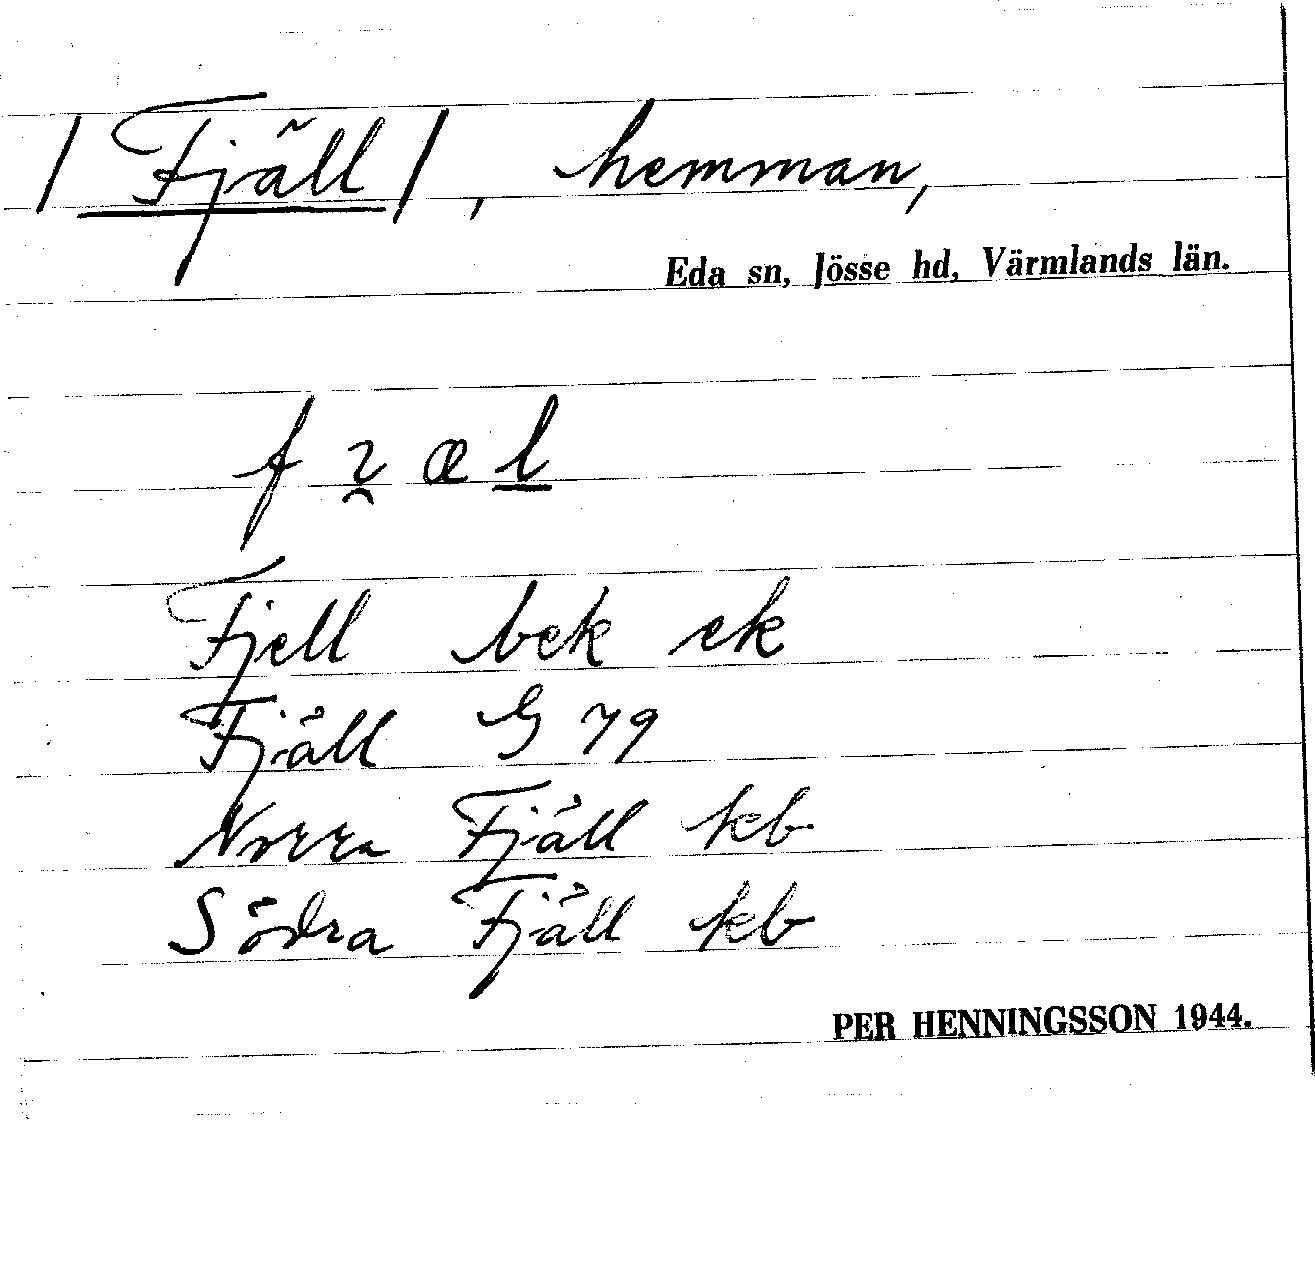 /Fjäll/, hemman,
Eda sn, Jösse hd, Värmlands län.
f ɿ̯ æ l̲
Fjell bek ek
Fjäll G 79
Norra Fjäll kb
Södra Fjäll kb
PER HENNINGSSON 1944.